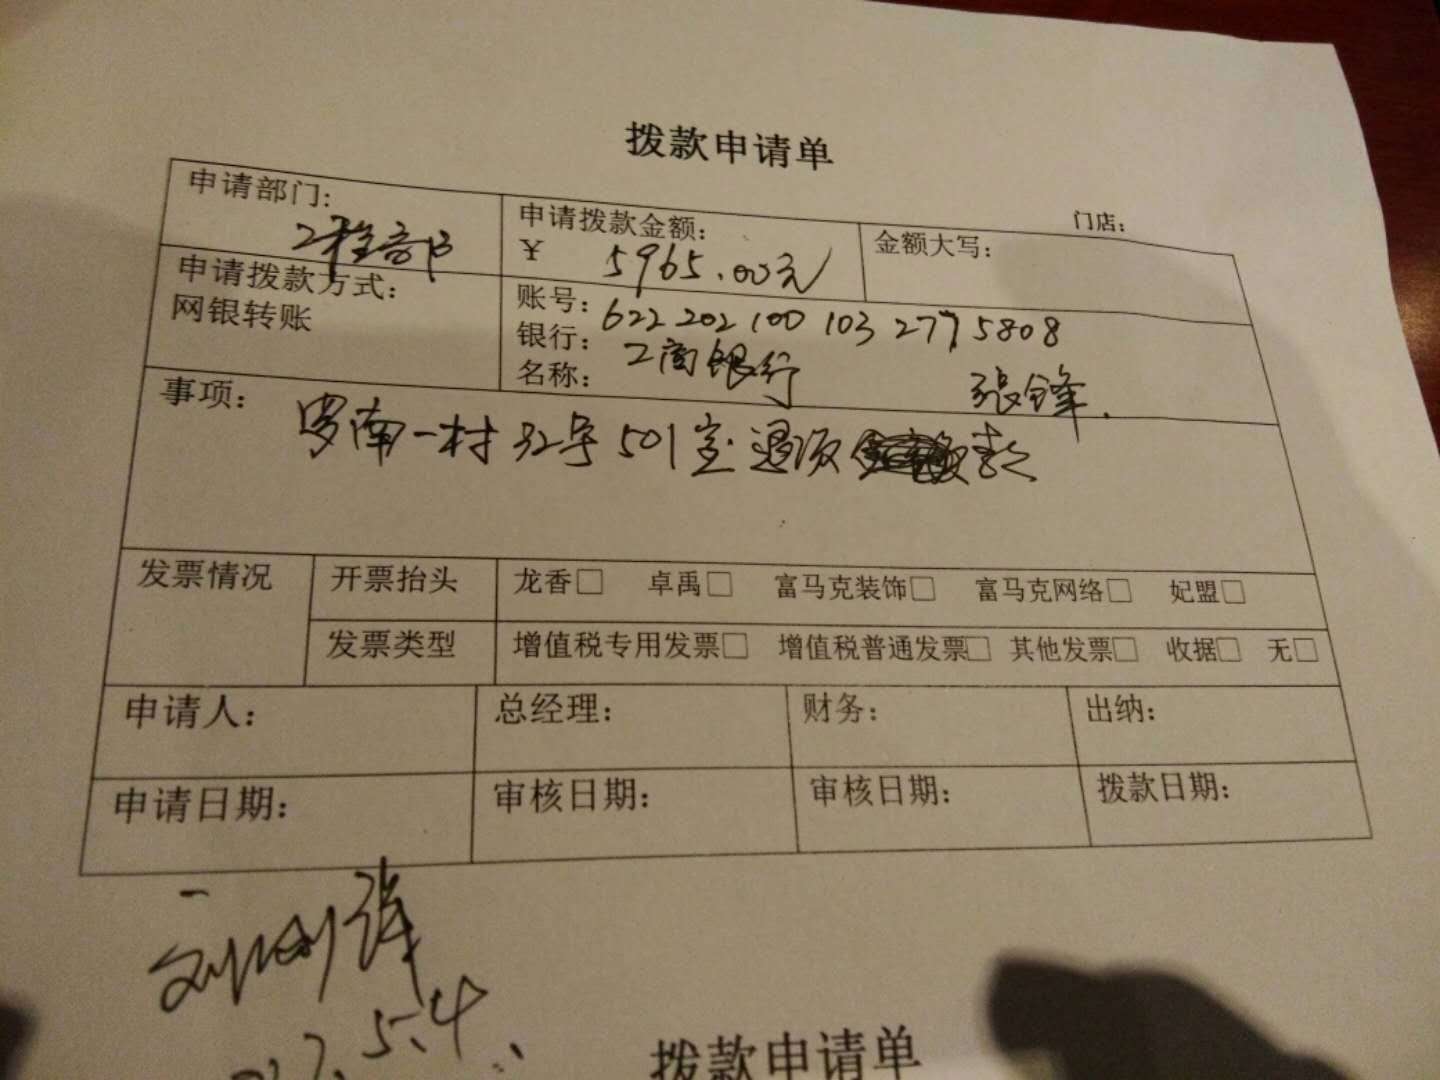 拨款申请单
门店：
申请部门： 工程部
申请拨款金额： ¥ 5965.00元
金额大写：
申请拨款方式： 网银转账
账号： 622 202 100 103 277 5808
银行： 工商银行
名称： 张锋.
事项： 罗南一村32号501室 退 款
发票情况
开票抬头 龙香□ 卓禹□ 富马克装饰□ 富马克网络□ 妃盟□
发票类型 增值税专用发票□ 增值税普通发票□ 其他发票□ 收据□ 无□
申请人： 总经理： 财务： 出纳：
申请日期： 审核日期： 审核日期： 拨款日期：
17.5.4.
拨款申请单